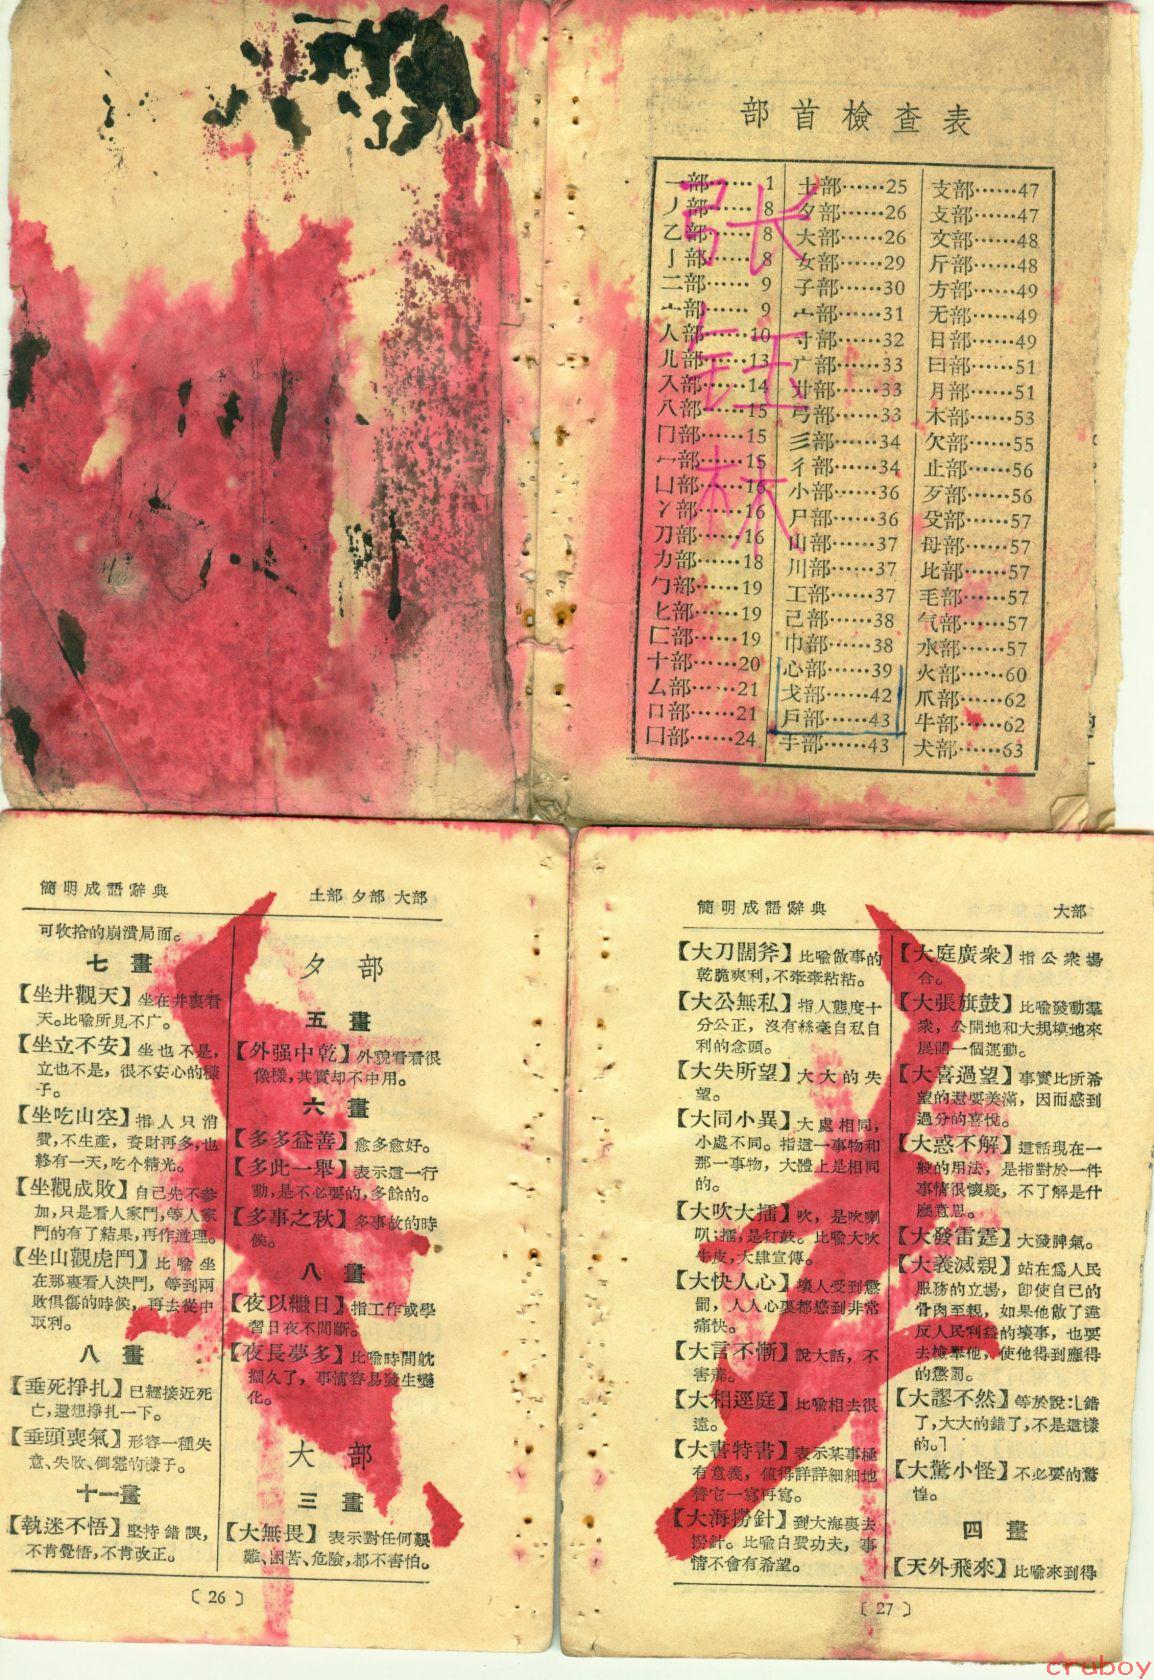 部首檢查表
一部……1
丿部……8
乙部……8
亅部……8
二部……9
亠部……9
人部……10
儿部……13
入部……14
八部……15
冂部……15
冖部……15
凵部……16
丫部……16
刀部……16
力部……18
勹部……19
匕部……19
匚部……19
十部……20
厶部……21
口部……21
囗部……24
土部……25
夕部……26
大部……26
女部……29
子部……30
宀部……31
寸部……32
广部……33
廾部……33
弓部……33
彡部……34
彳部……34
小部……36
尸部……36
山部……37
川部……37
工部……37
己部……38
巾部……38
心部……39
戈部……42
戶部……43
手部……43
支部……47
攴部……47
文部……48
斤部……48
方部……49
无部……49
日部……49
曰部……51
月部……51
木部……53
欠部……55
止部……56
歹部……56
殳部……57
母部……57
比部……57
毛部……57
气部……57
水部……57
火部……60
爪部……62
牛部……62
犬部……63
张
钰
林
簡明成語辭典
土部 夕部 大部
可收拾的崩潰局面。
七 畫
【坐井觀天】坐在井裏看
天。比喩所見不广。
【坐立不安】坐也不是,
立也不是, 很不安心的樣
子。
【坐吃山空】指人只消
費,不生產, 資財再多,也
終有一天,吃个精光。
【坐觀成敗】自己先不參
加,只是看人家鬥,等人家
鬥的有了結果,再作道理。
【坐山觀虎鬥】比喩坐
在那裏看人決鬥, 等到兩
敗俱傷的時候, 再去從中
取利。
八 畫
【垂死掙扎】已經接近死
亡,還想掙扎一下。
【垂頭喪氣】形容一種失
意、失敗、倒霉的樣子。
十一畫
【執迷不悟】堅持錯誤,
不肯覺悟,不肯改正。
夕 部
五 畫
【外强中乾】外貌看看很
像樣,其實却不中用。
六 畫
【多多益善】愈多愈好。
【多此一舉】表示這一行
動,是不必要的,多餘的。
【多事之秋】多事故的時
候。
八 畫
【夜以繼日】指工作或學
習日夜不間斷。
【夜長夢多】比喩時間躭
擱久了, 事情容易發生變
化。
大 部
三 畫
【大無畏】表示對任何艱
難、困苦、危險,都不害怕。
〔 26 〕
簡明成語辭典
大部
【大刀闊斧】比喩做事的
乾脆爽利,不牽牽粘粘。
【大公無私】指人態度十
分公正, 沒有絲毫自私自
利的念頭。
【大失所望】大大的失
望。
【大同小異】大處相同,
小處不同。指這一事物和
那一事物, 大體上是相同
的。
【大吹大擂】吹, 是吹喇
叭;擂,是打鼓。比喩大吹
牛皮,大肆宣傳。
【大快人心】壞人受到懲
罰, 人人心裏都感到非常
痛快。
【大言不慚】說大話, 不
害羞。
【大相逕庭】比喩相去很
遠。
【大書特書】表示某事極
有意義, 値得詳詳細細地
替它一寫再寫。
【大海撈針】到大海裏去
撈針。比喩白費功夫, 事
情不會有希望。
【大庭廣衆】指公衆場
合。
【大張旗鼓】比喩發動羣
衆, 公開地和大規模地來
展開一個運動。
【大喜過望】事實比所希
望的還要美滿, 因而感到
過分的喜悅。
【大惑不解】這話現在一
般的用法, 是指對於一件
事情很懷疑, 不了解是什
麽意思。
【大發雷霆】大發脾氣。
【大義滅親】站在爲人民
服務的立場, 卽使自己的
骨肉至親, 如果他做了違
反人民利益的壞事, 也要
去檢舉他, 使他得到應得
的懲罰。
【大謬不然】等於說:「錯
了,大大的錯了,不是這樣
的。」
【大驚小怪】不必要的驚
惶。
四 畫
【天外飛來】比喩來到得
〔 27 〕
cruboy